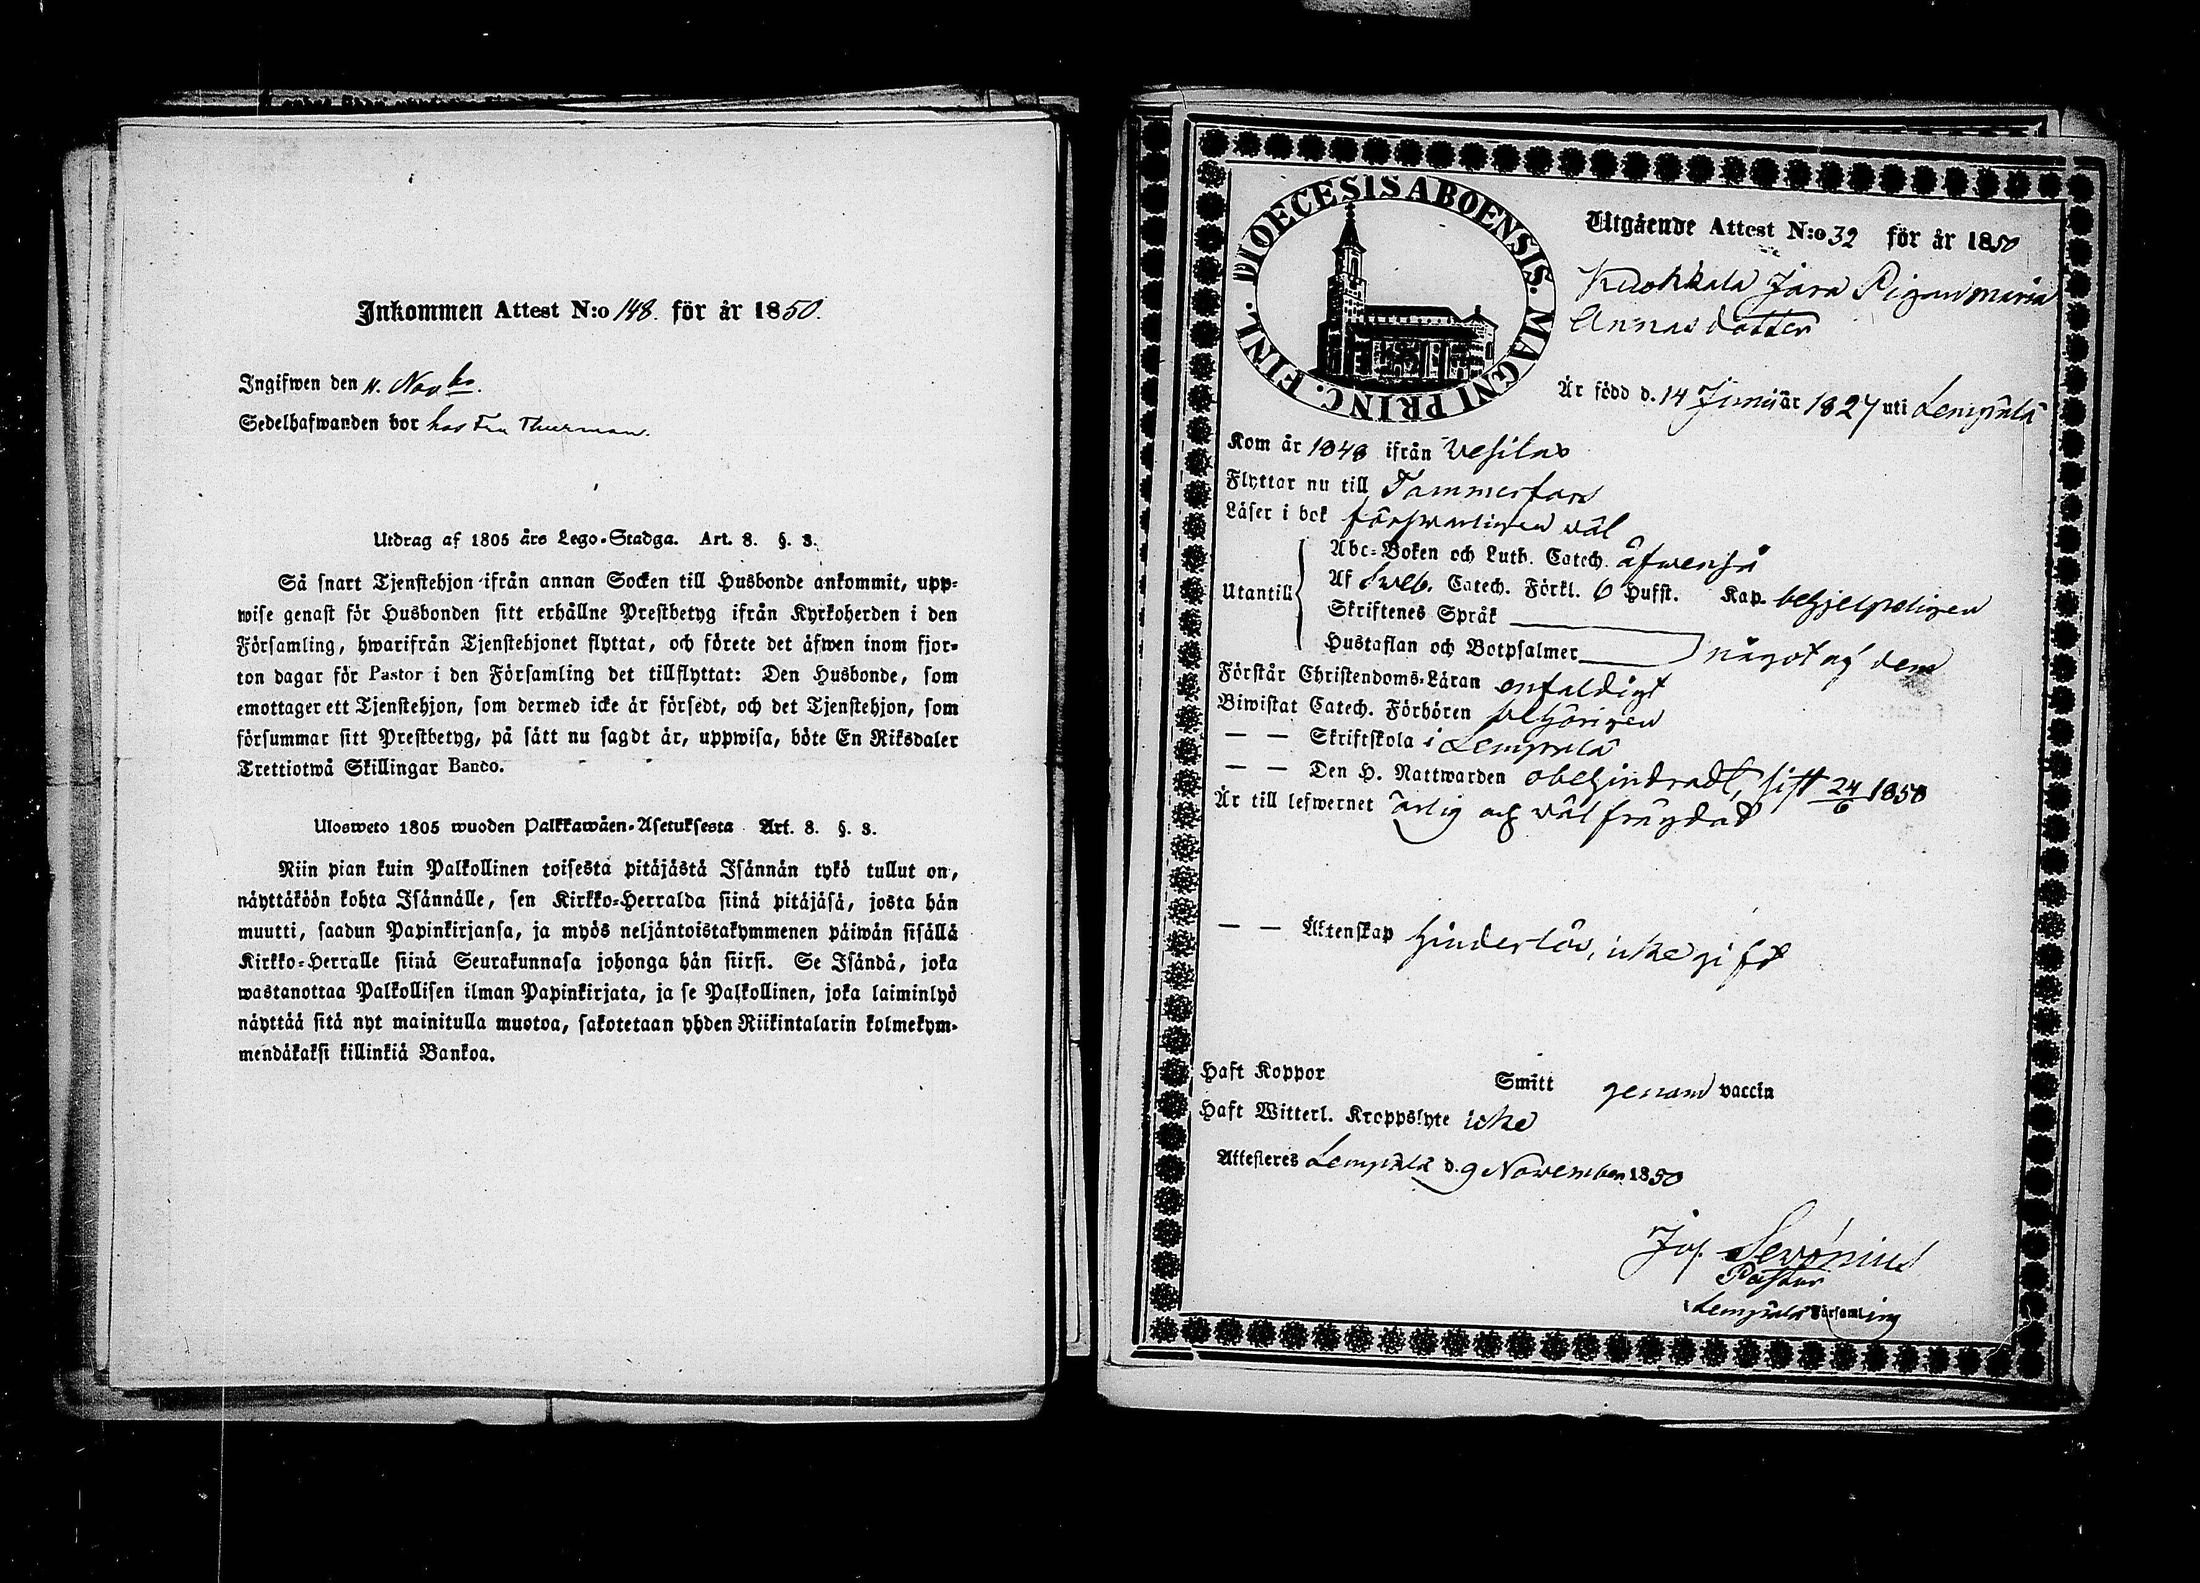 Inkommen Attest N:o 148. för år 1850.
Ingifwen den 11. Novbr.
Sedelhafwanden bor hos Fru Thurman.
Utdrag af 1805 års Lego-Stadga. Art. 8. §. 3.
Så snart Tjenstehjon ifrån annan Socken till Husbonde ankommit, upp-
wise genast för Husbonden sitt erhållne Prestbetyg ifrån Kyrkoherden i den
Församling, hwarifrån Tjenstehjonet flyttat, och förete det äfwen inom fjor-
ton dagar för Pastor i den Församling det tillflyttat: Den Husbonde, som
emottager ett Tjenstehjon, som dermed icke är försedt, och det Tjenstehjon, som
försummar sitt Prestbetyg, på sätt nu sagdt är, uppwisa, böte En Riksdaler
Trettiotwå Skillingar Banco.
Ulosweto 1805 wuoden Palkkawäen-Asetuksesta Art. 8. §. 3.
Niin pian kuin Palkollinen toisesta pitäjästä Isännän tykö tullut on,
näyttäköön kohta Isännälle, sen Kirkko-Herralda siinä pitäjäsä, josta hän
muutti, saadun Papinkirjansa, ja myös neljäntoistakymmenen päiwän sisällä
Kirkko-Herralle siinä Seurakunnasa johonga hän siirsi. Se Isändä, joka
wastanottaa Palkollisen ilman Papinkirjata, ja se Palkollinen, joka laiminlyö
näyttää sitä nyt mainitulla muotoa, sakotetaan yhden Riikintalarin kolmekym-
mendäkaksi killinkiä Bankoa.
DIOECESIS ABOENSIS. MAGNI PRINC. FINL.
Utgående Attest N:o 32 för år 1850
Kuokkala Jara Pigan Maria
Annasdotter
Är född d. 14 Junii år 1827 uti Lempälä
Kom år 1848 ifrån Vesilax
Flyttar nu till Tammerfors
Läser i bok förswarligen wäl
Abc-Boken och Luth. Catech. äfwenså
Utantill Af Sweb. Catech. Förkl. 6 Hufst. Kap. behjelpeligen
Skriftenes Språk
Hustaflan och Botpsalmer något af dem
Förstår Christendoms-Läran enfaldigt
Biwistat Catech. Förhören behörigen
— — Skriftskola i Lempälä
— — Den H. Nattwarden obehindradt, sist 24/6 1850
Är till lefwernet ärlig och wäl frägdad
— — Äktenskap hinderlös, icke gift
Haft Koppor Smitt genom vaccin
Haft Witterl. Kroppslyte icke
Attesteres Lempälä d. 9 November 1850
Jos. Servonius
Pastor
i Lempälä Församling